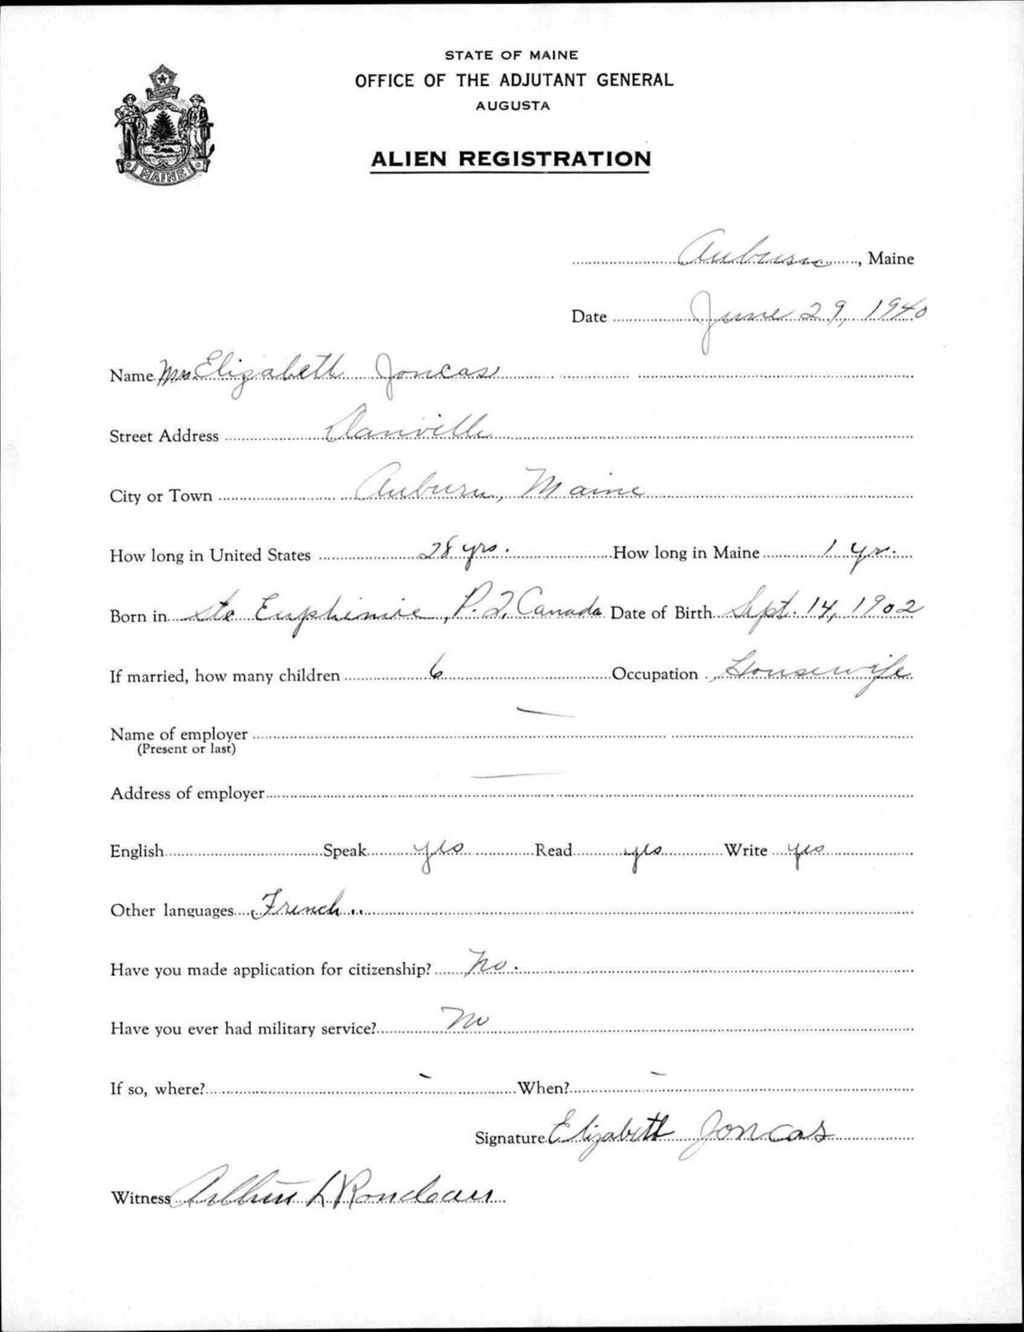 STATE OF MAINE
OFFICE OF THE ADJUTANT GENERAL
AUGUSTA
ALIEN REGISTRATION
MAINE
Auburn, Maine
Date June 29, 1940
Name Mrs Elizabeth Joncas
Street Address Danville
City or Town Auburn, Maine
How long in United States 28 yrs. How long in Maine 1 yr.
Born in Ste Euphimie, P.Q. Canada Date of Birth Sept. 14, 1902
If married, how many children 6 Occupation Housewife
Name of employer —
(Present or last)
Address of employer —
English Speak yes Read yes Write yes
Other languages French
Have you made application for citizenship? No.
Have you ever had military service? No
If so, where? - When? -
Signature Elizabeth Joncas
Witness L Rondeau